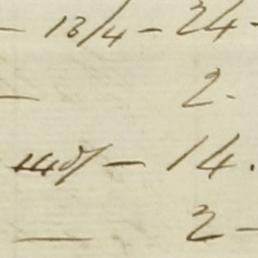 - 13/4 - 24 -
- 2.
- 14.
- 2 -